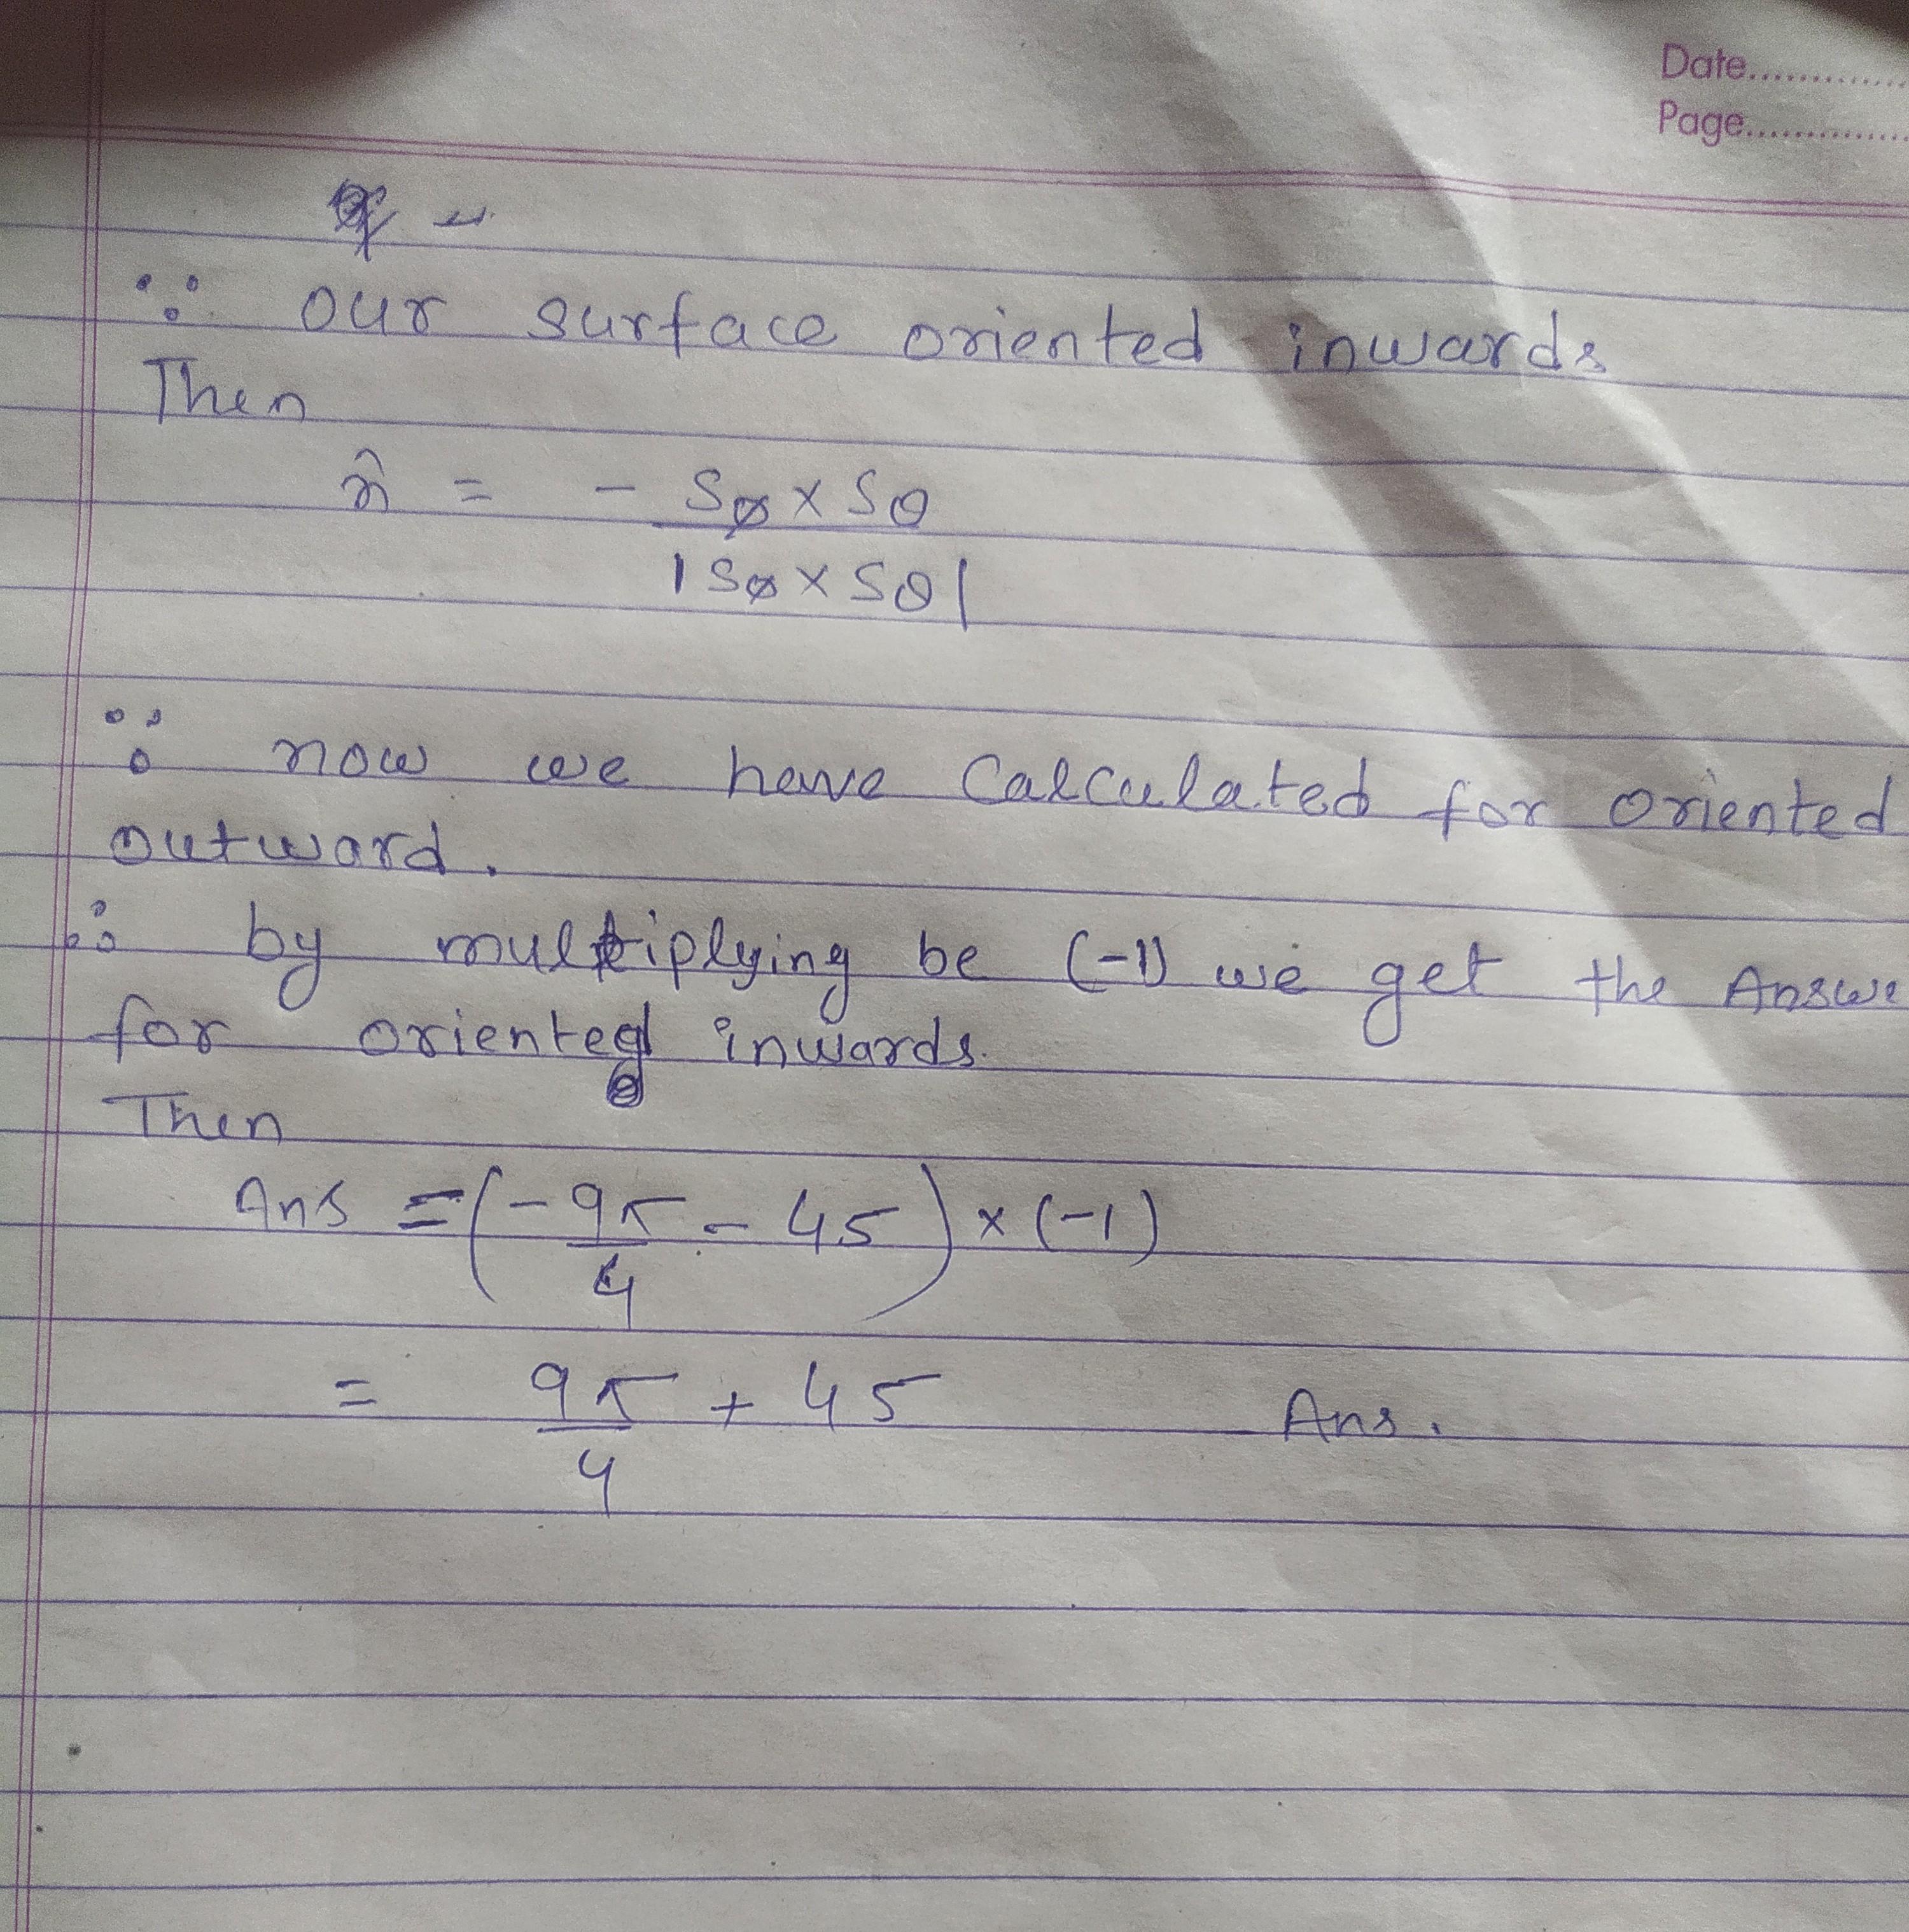 Date..............
Page..............
∵ our surface oriented inwards
Then
n̂ = - Sø × Sθ
|Sø × Sθ|
∵ now we have calculated for oriented
outward.
∴ by multiplying be (-1) we get the Answe
for oriented inwards.
Then
Ans = (-9π/4 - 45) × (-1)
= 9π/4 + 45 Ans.